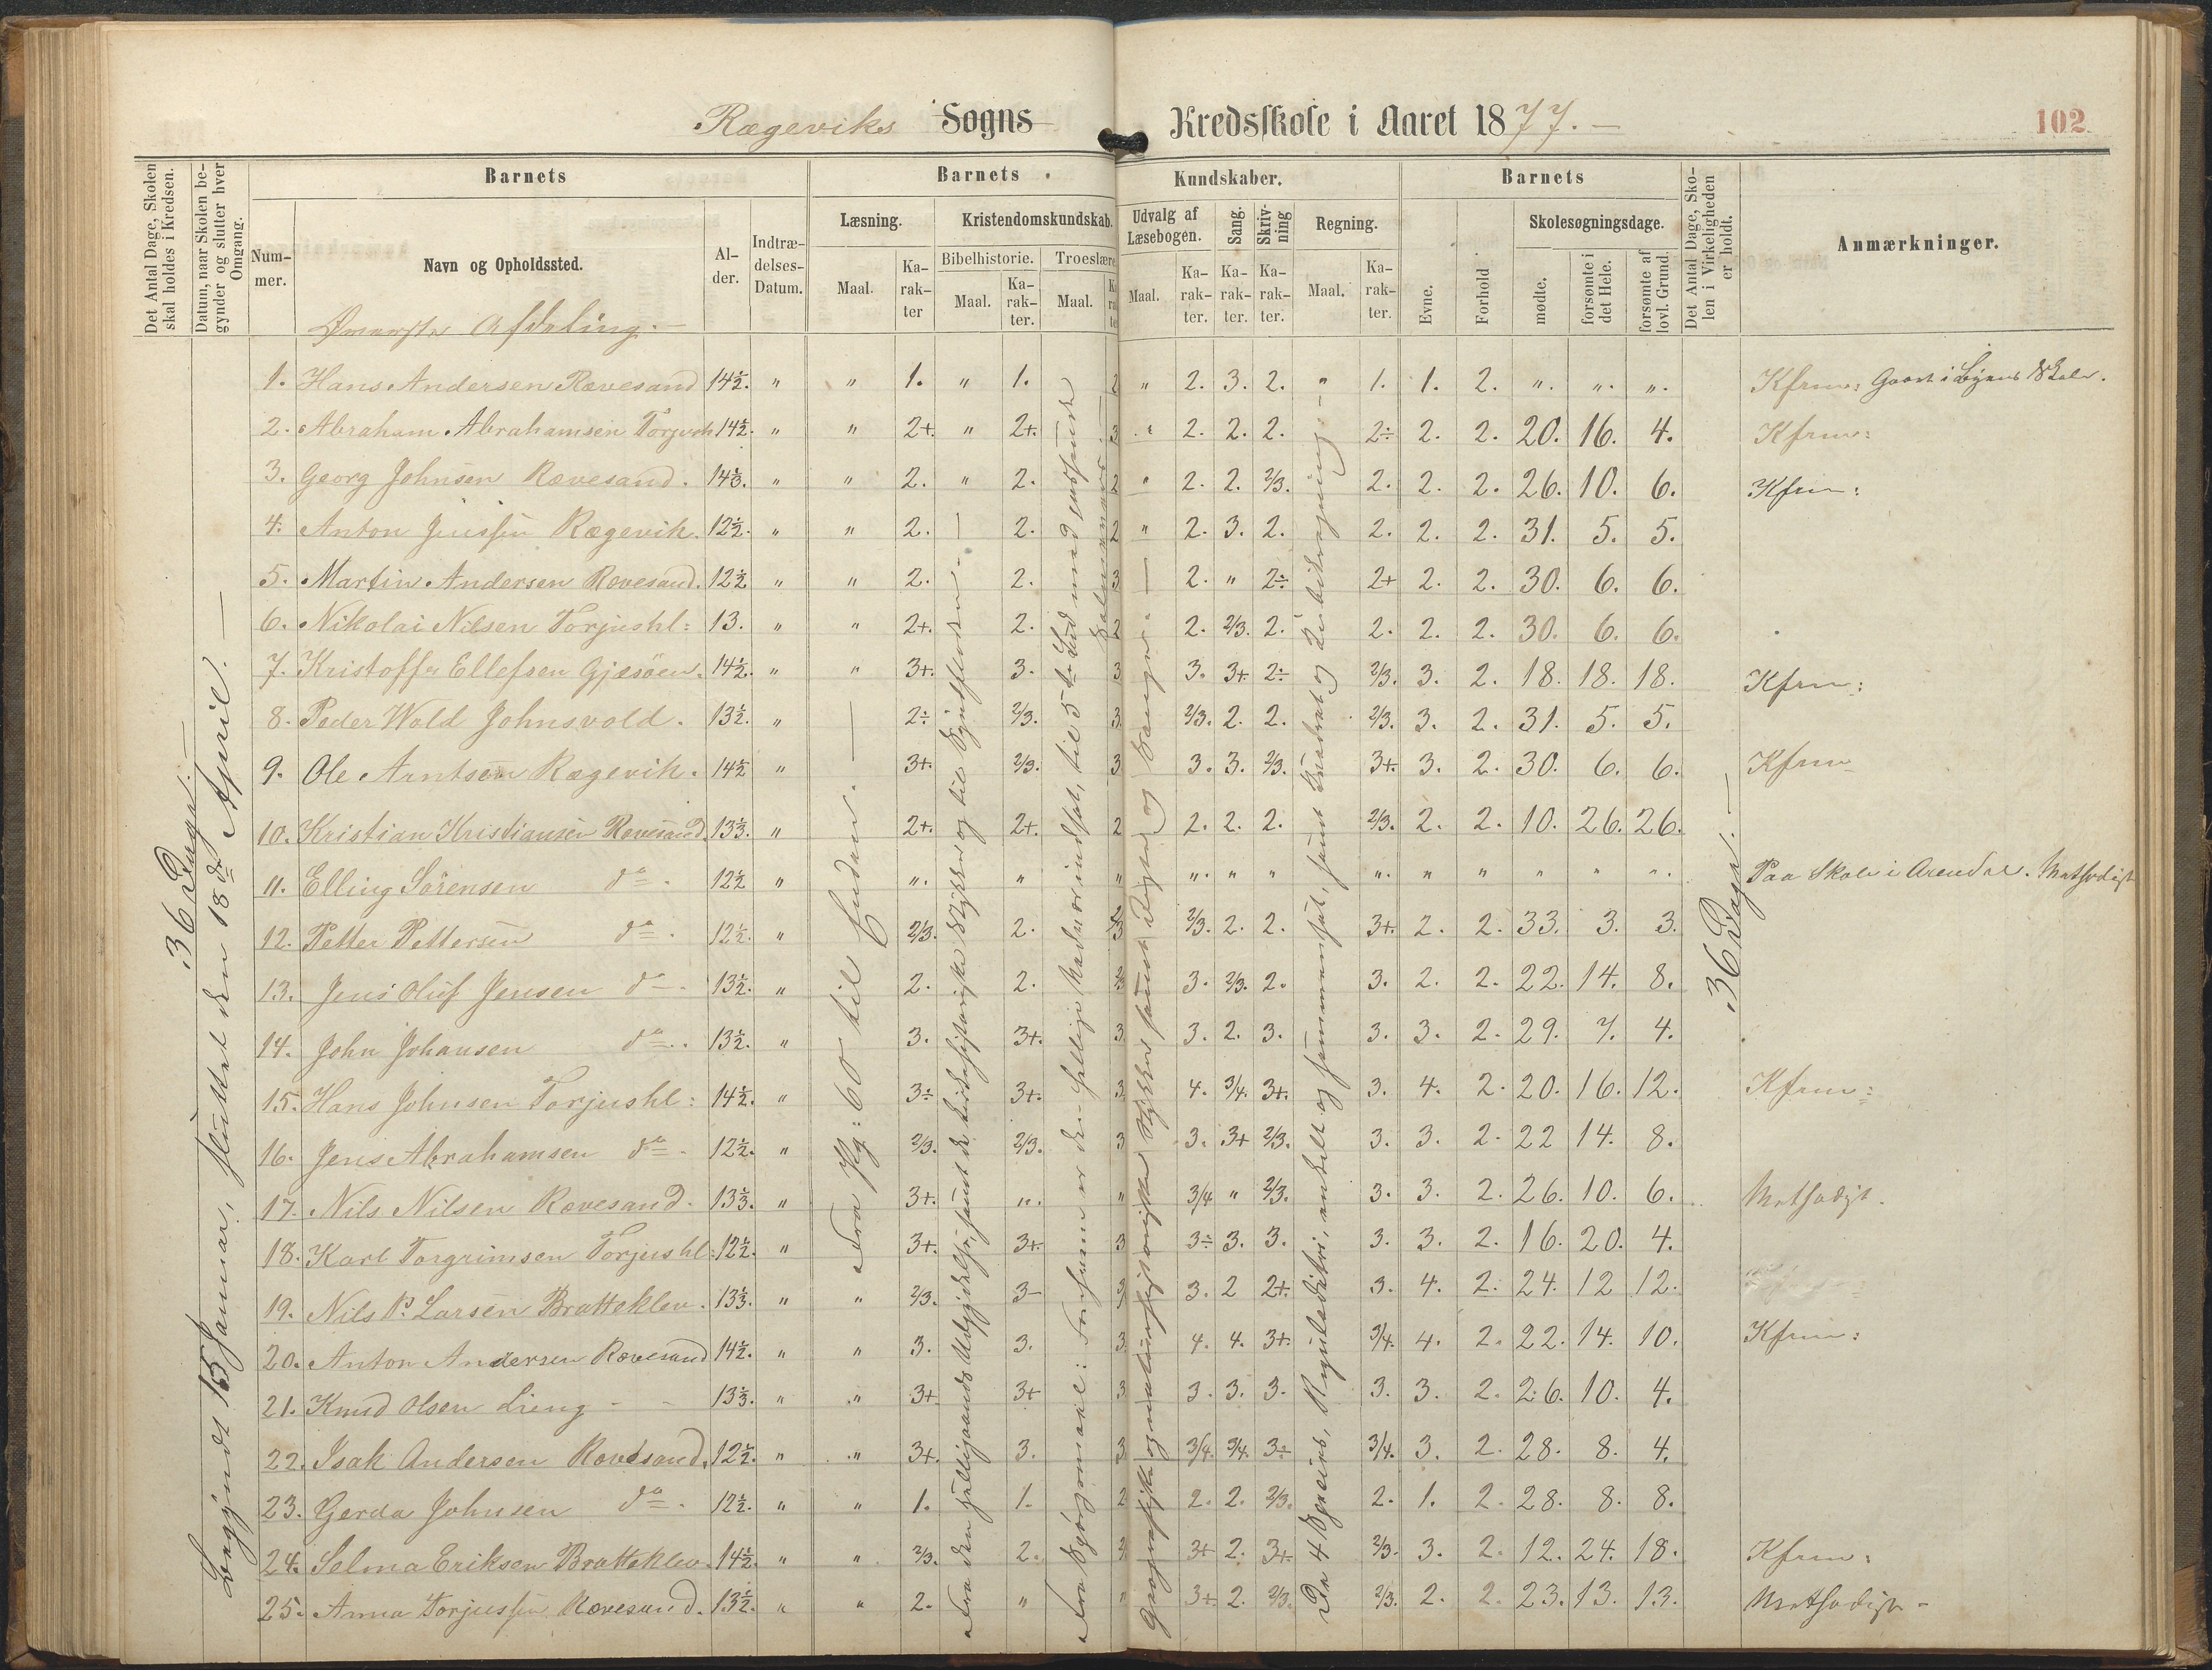 Rægeviks Sogns Kredsskole i Aaret 1877.
102
Det Antal Dage, Skolen skal holdes i Kredsen.
Datum, naar Skolen begynder og slutter hver Omgang.
Barnets
Nummer.
Navn og Opholdssted.
Alder.
Indtrædelses-Datum.
Barnets Kundskaber.
Læsning.
Maal. Karakter
Kristendomskundskab.
Bibelhistorie. Troeslære.
Maal. Karakter. Maal.
Udvalg af Læsebogen.
Maal. Karakter.
Sang. Karakter.
Skrivning Karakter.
Regning.
Maal. Karakter.
Barnets
Evne. Forhold
Skolesøgningsdage.
mødte. forsømte i det Hele. forsømte af lovl. Grund.
Det Antal Dage, Skolen i Virkeligheden er holdt.
Anmærkninger.
Afdeling.
36 Dage.
Begyndt 15 Januar, sluttet den 18de April.
Fra Pg: 60 til Enden.
36 Dage.
1. Hans Andersen Rævesand 14½. " " 1. " 1. 2 " 2. 3. 2. " 1. 1. 2. ". ". ". Kfrm: Gaaet i Byens Skole.
2. Abraham Abrahamsen Torjush 14½. " " 2+. " 2+. 3 " 2. 2. 2. 2÷ 2. 2. 20. 16. 4. Kfrm:
3. Georg Johnsen Rævesand. 14⅓. " " 2. " 2. 2 " 2. 2. 2/3. 2. 2. 2. 26. 10. 6. Kfrm:
4. Anton Jenssen Rægevik. 12½. " " 2. 2. 2 " 2. 3. 2. 2. 2. 2. 31. 5. 5.
5. Martin Andersen Rævesand. 12½ " " 2. 2. 3 2. " 2÷ 2+ 2. 2. 30. 6. 6.
6. Nikolai Nilsen Torjushl: 13. " " 2+. 2. 2 2. 2/3. 2. 2. 2. 2. 30. 6. 6.
7. Kristoffer Ellefsen Gjæsöen. 14½. " " 3+. 3. 3 3. 3+ 2÷ 2/3. 3. 2. 18. 18. 18. Kfrm:
8. Peder Wold Johnsvold. 13½. " 2÷ 2/3. 3. 2/3. 2. 2. 2/3. 3. 2. 31. 5. 5.
9. Ole Arntsen Rægevik. 14½ " 3+. 2/3. 3 3. 3. 2/3. 3+. 3. 2. 30. 6. 6. Kfrm
10. Kristian Kristiansen Rævesand. 13⅓. " 2+. 2+. 2 2. 2. 2. 2/3. 2. 2. 10. 26. 26.
11. Elling Sörensen do. 12½ " ". " " ". " " ". " " " " ". Paa Skole i Arendal. Methodist
12. Petter Pettersen do. 12½. " 2/3. 2. 2/3. 2. 2. 3+. 2. 2. 33. 3. 3.
13. Jens Oluf Jensen do. 13½. " 2. 2. 2/3 3. 2/3. 2. 3. 2. 2. 22. 14. 8.
14. John Johansen do. 13½. " 3. 3+. 3. 3. 2. 3. 3. 3. 2. 29. 7. 4.
15. Hans Johnsen Torjushl: 14½. " 3÷ 3+. 3. 4. 3/4. 3+. 3. 4. 2. 20. 16. 12. Kfrm:
16. Jens Abrahamsen do. 12½. " 2/3. 2/3. 3 3. 3+ 2/3. 3. 3. 2. 22 14. 8.
17. Nils Nilsen Rævesand. 13⅓. " 3+. ". " 3/4 " 2/3. 3. 3. 2. 26. 10. 6. Methodist.
18. Karl Torgrimsen Torjushl: 12½. " 3+. 3+. 3 3÷ 3. 3. 3. 3. 2. 16. 20. 4.
19. Nils P. Larsen Bratteklev. 13⅓. " " 2/3. 3- 3. 2 2+. 3. 4. 2. 24. 12 12.
20. Anton Andersen Rævesand 14½. " " 3. 3. 3. 4. 4. 3+. 3/4. 4. 2. 22. 14. 10. Kfrm:
21. Knud Olsen Lieng 13⅓. " " 3+ 3+ 3. 3. 3. 3. 3. 3. 2. 26. 10. 4.
22. Isak Andersen Rævesand. 12½. " " 3+. 3. 3. 3/4. 3/4. 3÷ 3/4. 3. 2. 28. 8. 4.
23. Gerda Johnsen do. 12½. " " 1. 1. 2 2. 2. 2/3. 2. 1. 2. 28. 8. 8.
24. Selma Eriksen Bratteklev. 14½. " " 2/3. 2. 3+ 2. 3+. 2/3. 3. 2. 12. 24. 18. Kfrm:
25. Anna Torjussen Rævesand. 13½. " " 2. " " 3+ 2. 2/3. 2/3. 2. 2. 23. 13. 13. Methodist